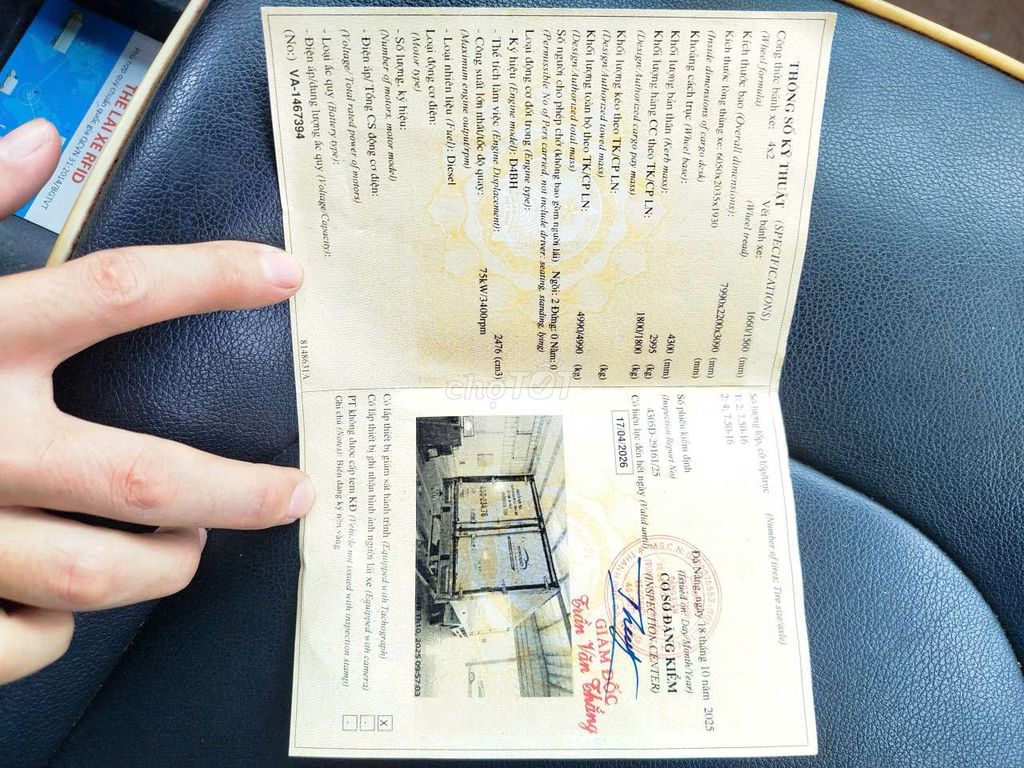 THÔNG SỐ KỸ THUẬT (SPECIFICATIONS)
Công thức bánh xe: 4x2 Vết bánh xe: 1660/1560 (mm)
(Wheel formula) (Wheel tread)
Kích thước bao (Overall dimensions): 7990x2200x3090 (mm)
Kích thước lòng thùng xe: 6050x2035x1930
(Inside dimensions of cargo desk)
Khoảng cách trục (Wheel base): 4300 (mm)
Khối lượng bản thân (Kerb mass): 2995 (kg)
Khối lượng hàng CC theo TK/CP LN: 1800/1800 (kg)
(Design/Authorized cargo pay mass)
Khối lượng kéo theo TK/CP LN: (kg)
(Design/Authorized towed mass)
Khối lượng toàn bộ theo TK/CP LN: 4990/4990 (kg)
(Design/Authorized total mass)
Số người cho phép chở (không bao gồm người lái) Ngồi: 2 Đứng: 0 Nằm: 0
(Permissible No of Pers carried, not include driver: seating, standing, lying)
Loại động cơ đốt trong (Engine type):
- Ký hiệu (Engine model): D4BH
- Thể tích làm việc (Engine Displacement): 2476 (cm3)
- Công suất lớn nhất/tốc độ quay: 75kW/3400rpm
(Maximum engine output/rpm)
- Loại nhiên liệu (Fuel): Diesel
Loại động cơ điện:
(Motor type)
- Số lượng, ký hiệu:
(Number of motors, motor model)
- Điện áp/ Tổng CS động cơ điện:
(Voltage/ Total rated power of motors)
- Loại ắc quy (Battery type):
- Điện áp/dung lượng ắc quy (Voltage/Capacity):
(No) VA-1467394
8148631A
Số lượng lốp, cỡ lốp/trục (Number of tires; Tire size/axle)
1: 2; 7.50-16
2: 4; 7.50-16
Số phiếu kiểm định
(Inspection Report No)
4305D-29161/25
Có hiệu lực đến hết ngày (Valid until)
17/04/2026
Đà Nẵng, ngày 18 tháng 10 năm 2025
(Issued on: Day/Month/Year)
CƠ SỞ ĐĂNG KIỂM
(INSPECTION CENTER)
GIÁM ĐỐC
Trần Văn Thắng
2025 09:57:03
Có lắp thiết bị giám sát hành trình (Equipped with Tachograph) X
Có lắp thiết bị ghi nhận hình ảnh người lái xe (Equipped with camera) -
PT không được cấp tem KĐ (Vehicle not issued with inspection stamp) -
Ghi chú (Notes): Biển đăng ký nền vàng
THẺ LÁI XE RFID
chợTỐT